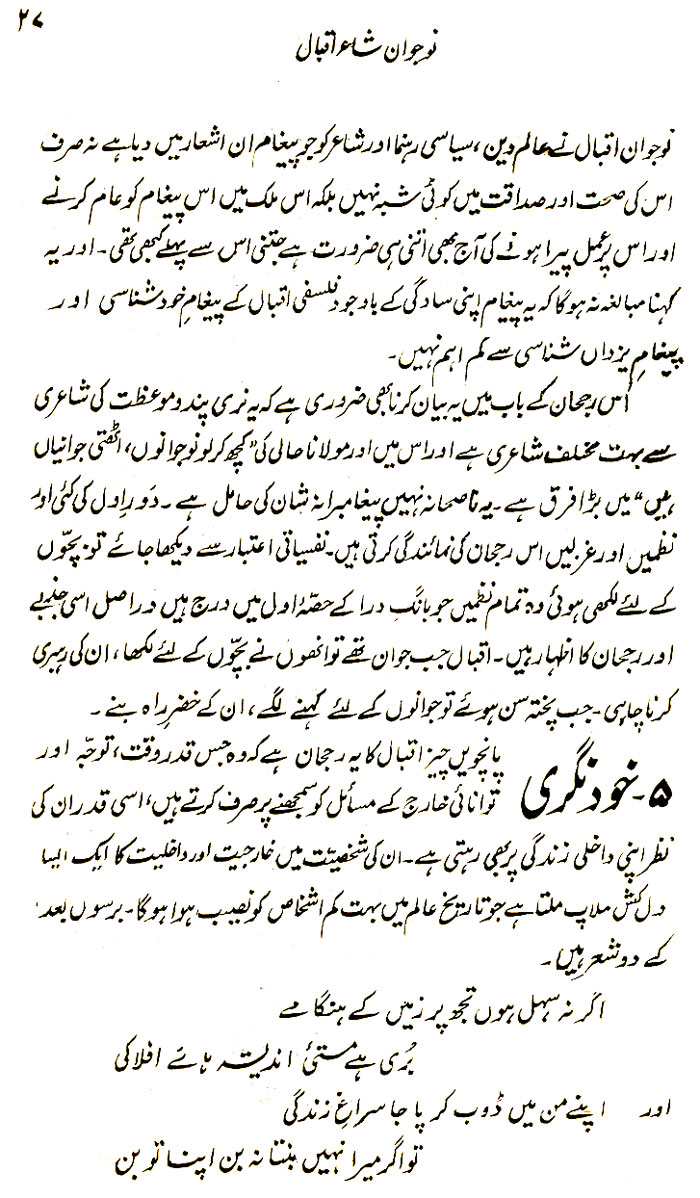 ۲۷
نوجوان شاعر اقبال
نوجوان اقبال نے عالم دین، سیاسی رہنما اور شاعر کو جو پیغام ان اشعار میں دیا ہے نہ صرف
اس کی صحت اور صداقت میں کوئی شبہ نہیں بلکہ اس ملک میں اس پیغام کو عام کرنے
اور اس پر عمل پیرا ہونے کی آج بھی اتنی ہی ضرورت ہے جتنی اس سے پہلے کبھی تھی۔ اور یہ
کہنا مبالغہ نہ ہوگا کہ یہ پیغام اپنی سادگی کے باوجود فلسفی اقبال کے پیغامِ خود شناسی اور
پیغامِ یزداں شناسی سے کم اہم نہیں۔
اُس رجحان کے باب میں یہ بیان کرنا بھی ضروری ہے کہ یہ نری پند و موعظت کی شاعری
سے بہت مختلف شاعری ہے اور اس میں اور مولانا حالی کی "کچھ کر لو نوجوانوں، اٹھتی جوانیاں
ہیں" میں بڑا فرق ہے۔ یہ ناصحانہ نہیں پیغامبرانہ شان کی حامل ہے۔ دَورِ اول کی کئی اور
نظمیں اور غزلیں اس رجحان کی نمائندگی کرتی ہیں۔ نفسیاتی اعتبار سے دیکھا جائے تو بچّوں
کے لئے لکھی ہوئی وہ تمام نظمیں جو بانگِ درا کے حصّۂ اول میں درج ہیں دراصل اسی جذبے
اور رجحان کا اظہار ہیں۔ اقبال جب جوان تھے تو انھوں نے بچّوں کے لئے لکھا، ان کی رہبری
کرنا چاہی۔ جب پختہ سن ہوئے تو جوانوں کے لئے کہنے لگے، ان کے خضرِ راہ بنے۔
۵۔ خود نگری
پانچویں چیز اقبال کا یہ رجحان ہے کہ وہ جس قدر وقت، توجّہ اور
توانائی خارج کے مسائل کو سمجھنے پر صرف کرتے ہیں، اسی قدر ان کی
نظر اپنی داخلی زندگی پر بھی رہتی ہے۔ ان کی شخصیّت میں خارجیت اور داخلیت کا ایک ایسا
دل کش ملاپ ملتا ہے جو تاریخ عالم میں بہت کم اشخاص کو نصیب ہوا ہوگا۔ برسوں بعد
کے دو شعر ہیں۔
اگر نہ سہل ہوں تجھ پر زمیں کے ہنگامے
بُری ہے مستیٔ اندیشہ ہائے افلاکی
اور اپنے من میں ڈوب کر پا جا سراغِ زندگی
تو اگر میرا نہیں بنتا نہ بن اپنا تو بن